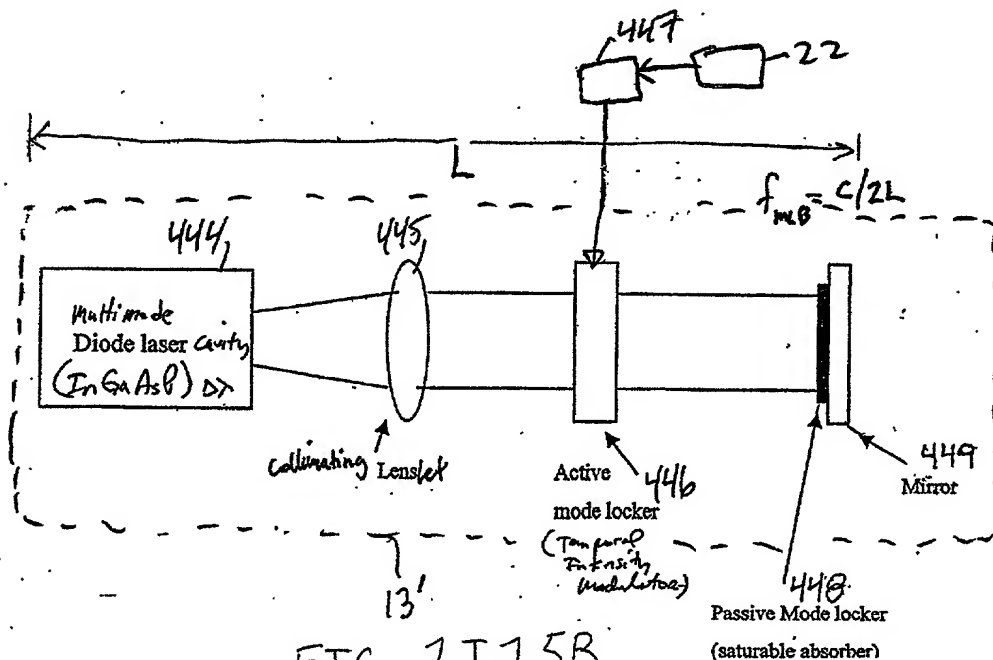 447
22
L
f_MLB = C/2L
444
445
Multimode
Diode laser cavity
(InGaAsP) Δλ
Collimating Lenslet
Active 446
mode locker
(Temporal
Intensity
Modulator)
449
Mirror
13'
448
Passive Mode locker
(saturable absorber)
FIG. 1I15B